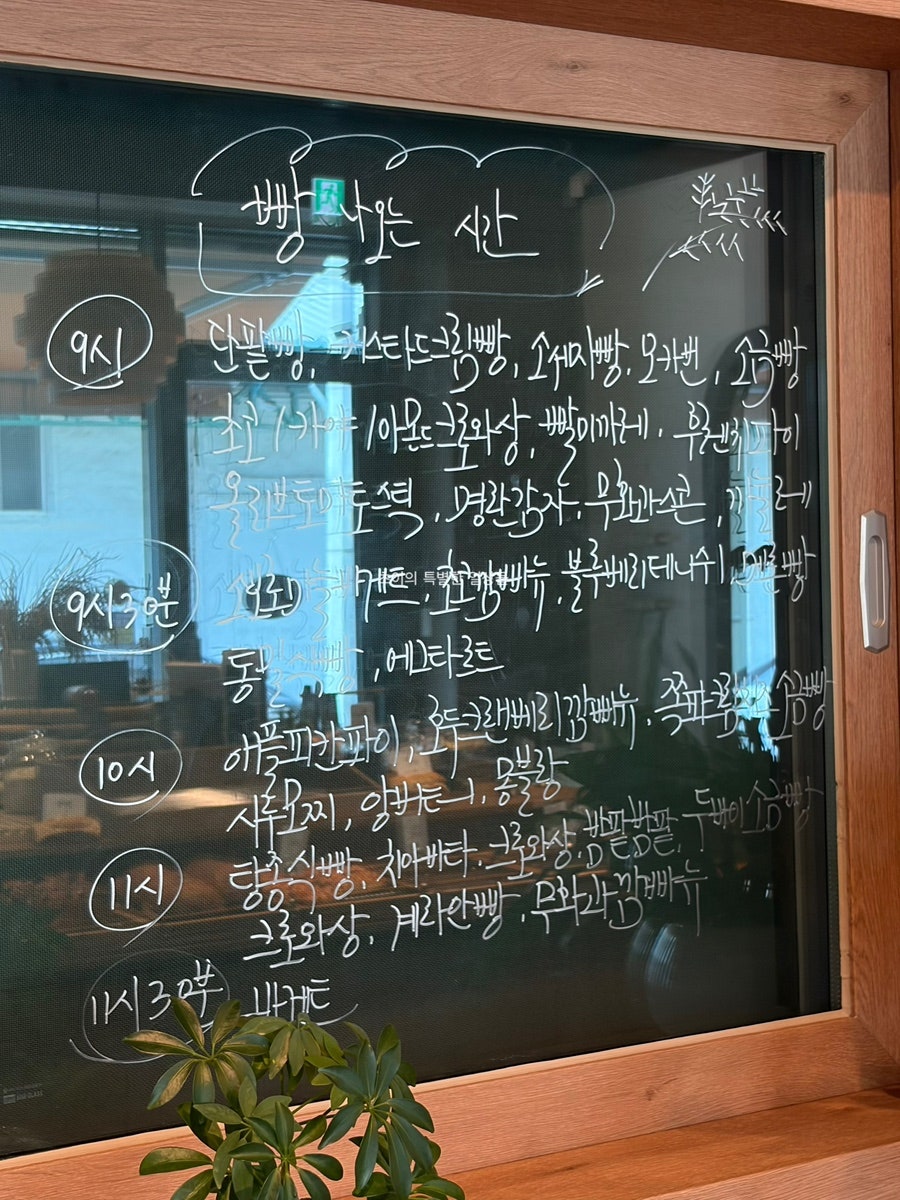 빵 나오는 시간
9시 단팥빵, 커스타드크림빵, 소세지빵, 모카번, 소금빵
초코/카야/아몬드크로와상, 빨미까레, 후렌치파이
올리브토마토스틱, 명란감자, 무화과스콘, 까눌레
9시30분 바게트, 호두깜빠뉴, 블루베리데니쉬, 멜론빵
통팥식빵, 에그타르트
10시 애플피칸파이, 호두크랜베리깜빠뉴, 쪽파크림치즈소금빵
시루모찌, 앙버터, 몽블랑
11시 탕종식빵, 치아바타, 크로와상, 밤팥밤팥, 두부이소금빵
크로와상, 계란빵, 무화과깜빠뉴
11시30분 바게트